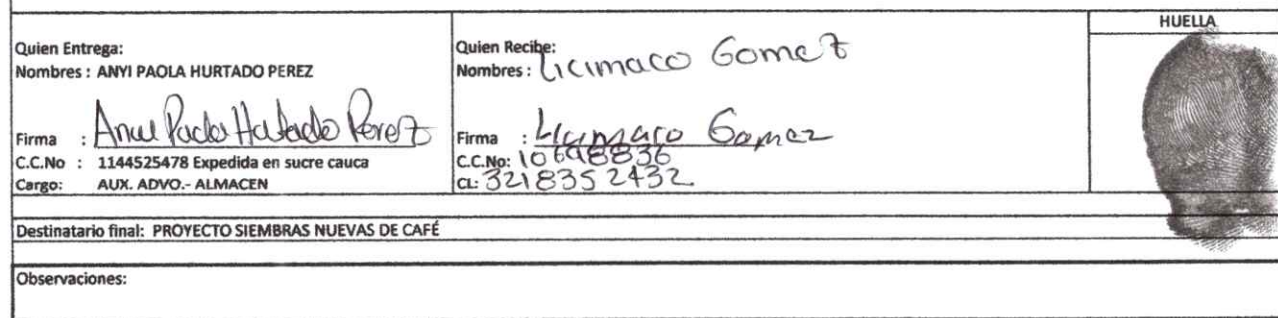 HUELLA
Quien Entrega:
Nombres : ANYI PAOLA HURTADO PEREZ
Firma : Anyi Paola Hurtado Perez
C.C.No : 1144525478 Expedida en sucre cauca
Cargo: AUX. ADVO.- ALMACEN
Quien Recibe:
Nombres : Licimaco Gomez
Firma : Licimaco Gomez
C.C.No: 10698836
CL: 3218352432
Destinatario final: PROYECTO SIEMBRAS NUEVAS DE CAFÉ
Observaciones: